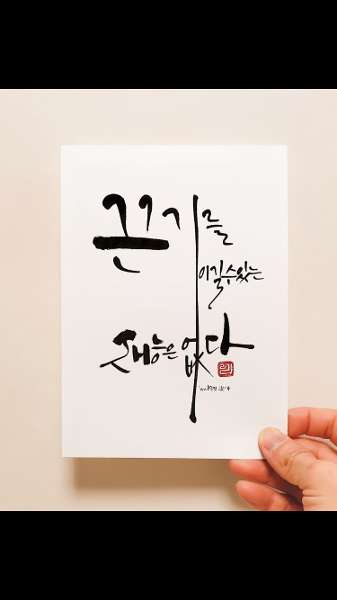 끈기를
이길수있는
재능은 없다